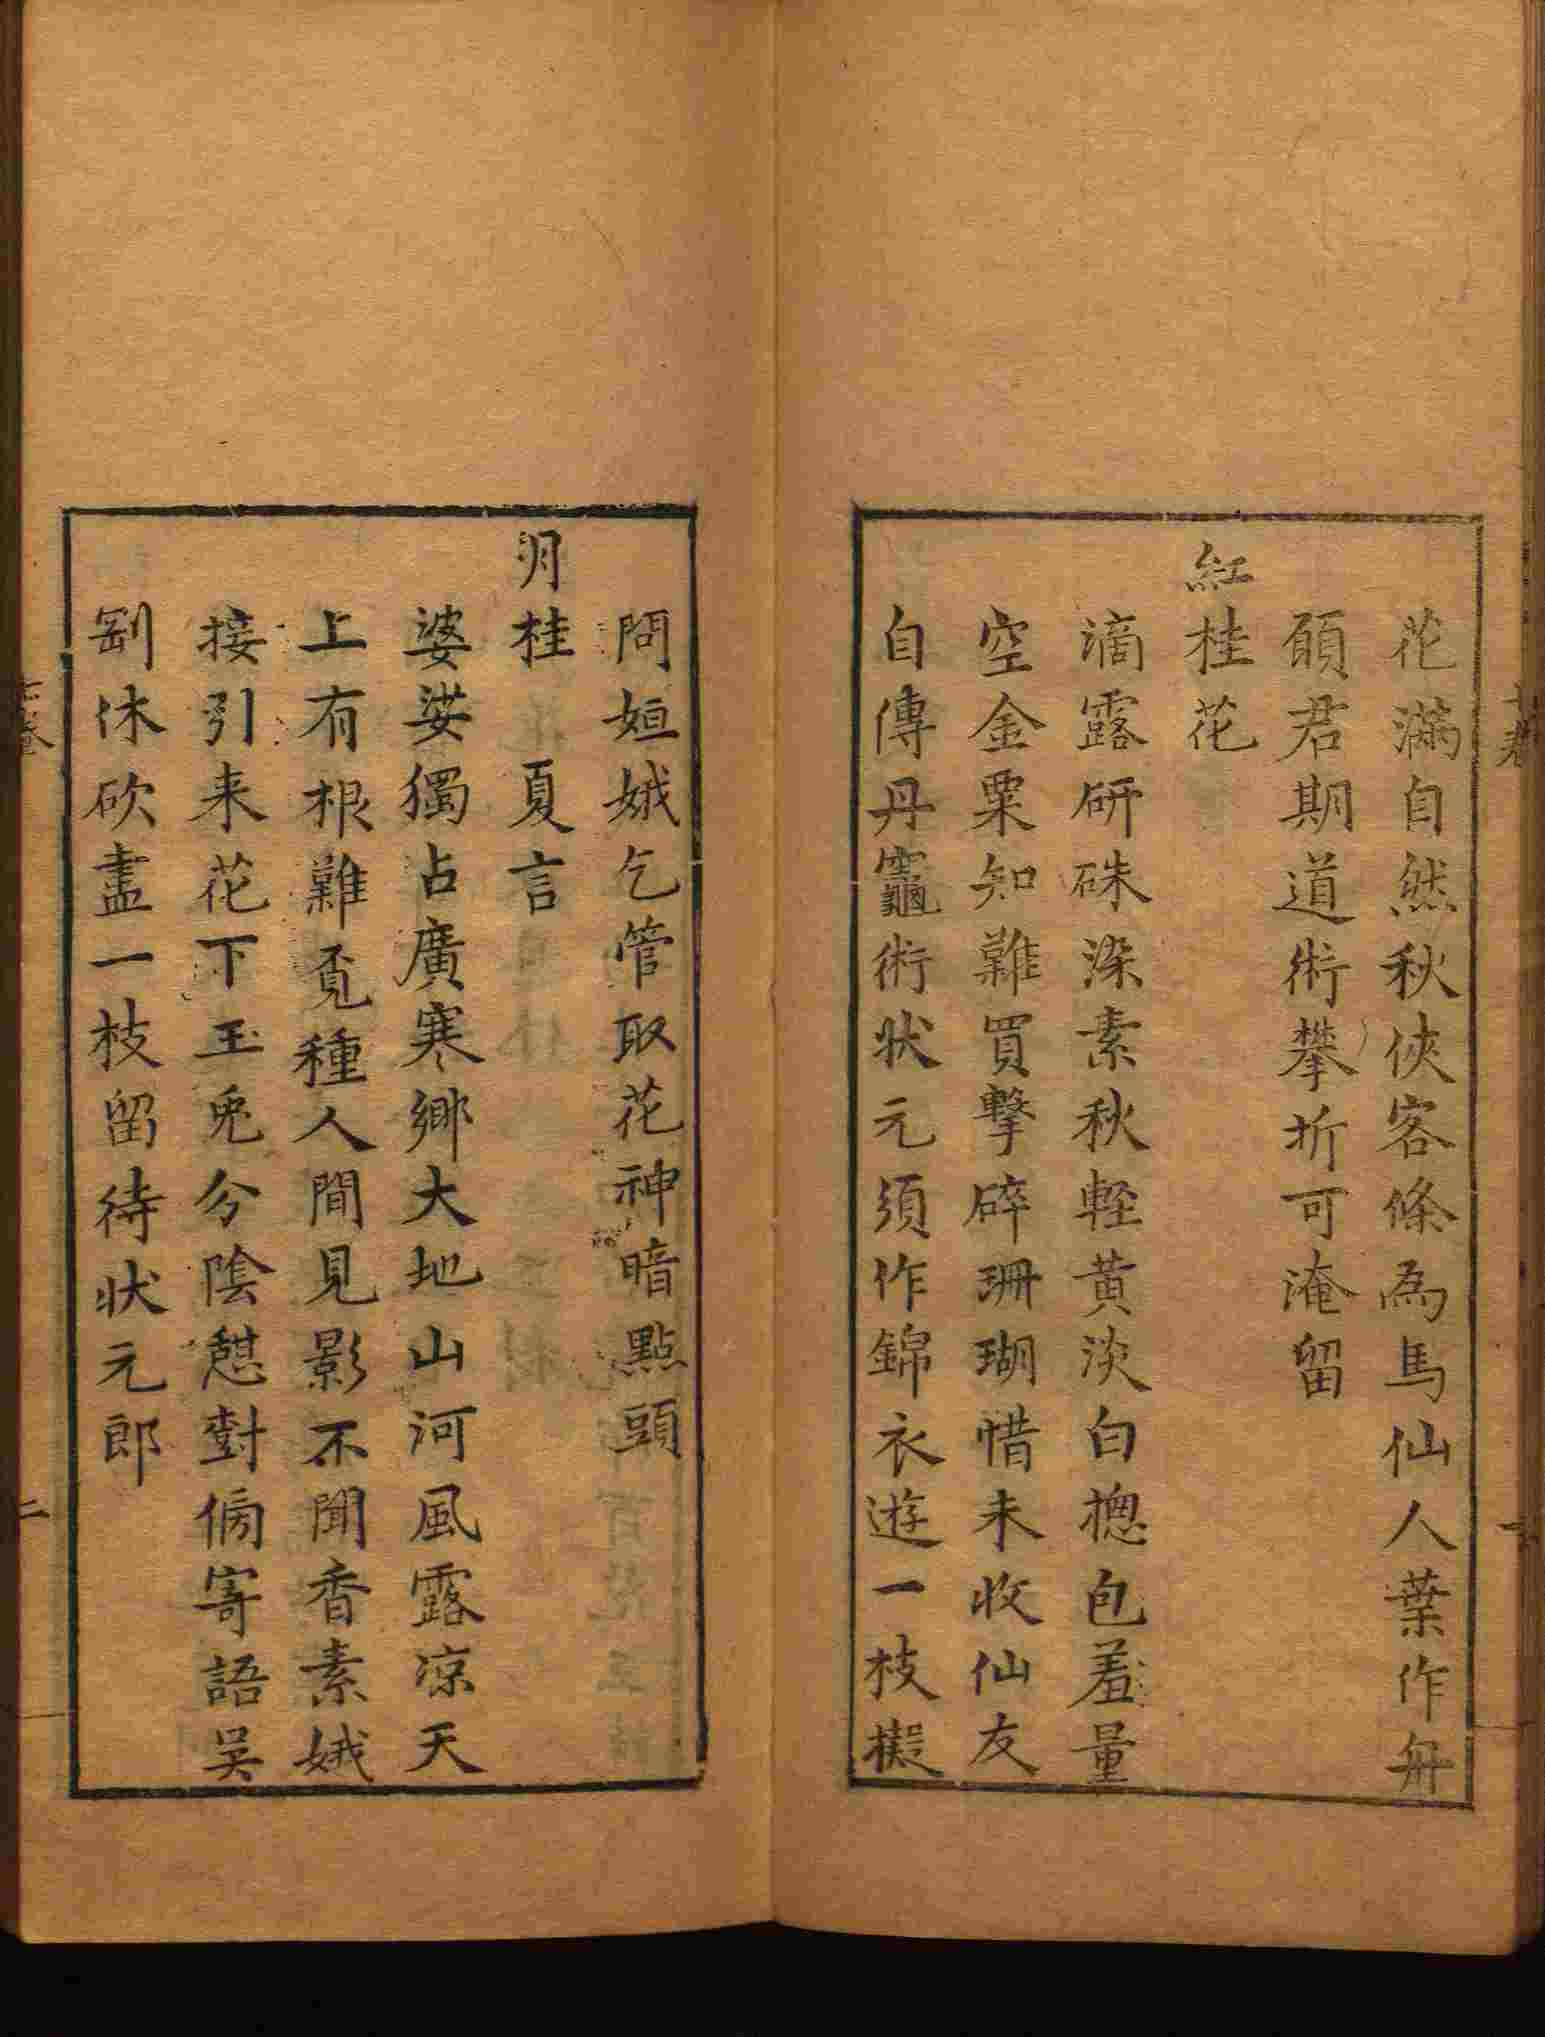 花滿自然秋俠客條為馬仙人葉作舟
願君期道術攀折可淹留
紅桂花
滴露研硃染素秋輕黃淡白摠包羞量
空金粟知難買擊碎珊瑚惜未收仙友
自傳丹竈術状元須作錦衣遊一枝擬
問姮娥乞管取花神暗點頭
月桂 夏言
婆娑獨占廣寒鄉大地山河風露涼天
上有根難覓種人間見影不聞香素娥
接引来花下玉兎分陰憇對傍寄語吳
剛休砍盡一枝留待状元郎